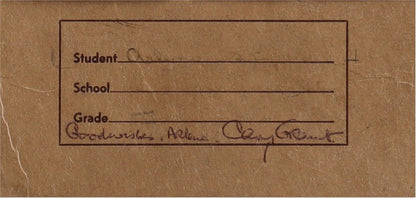 Student Arlene
School
Grade
Goodwishes, Arlene. Cary Grant